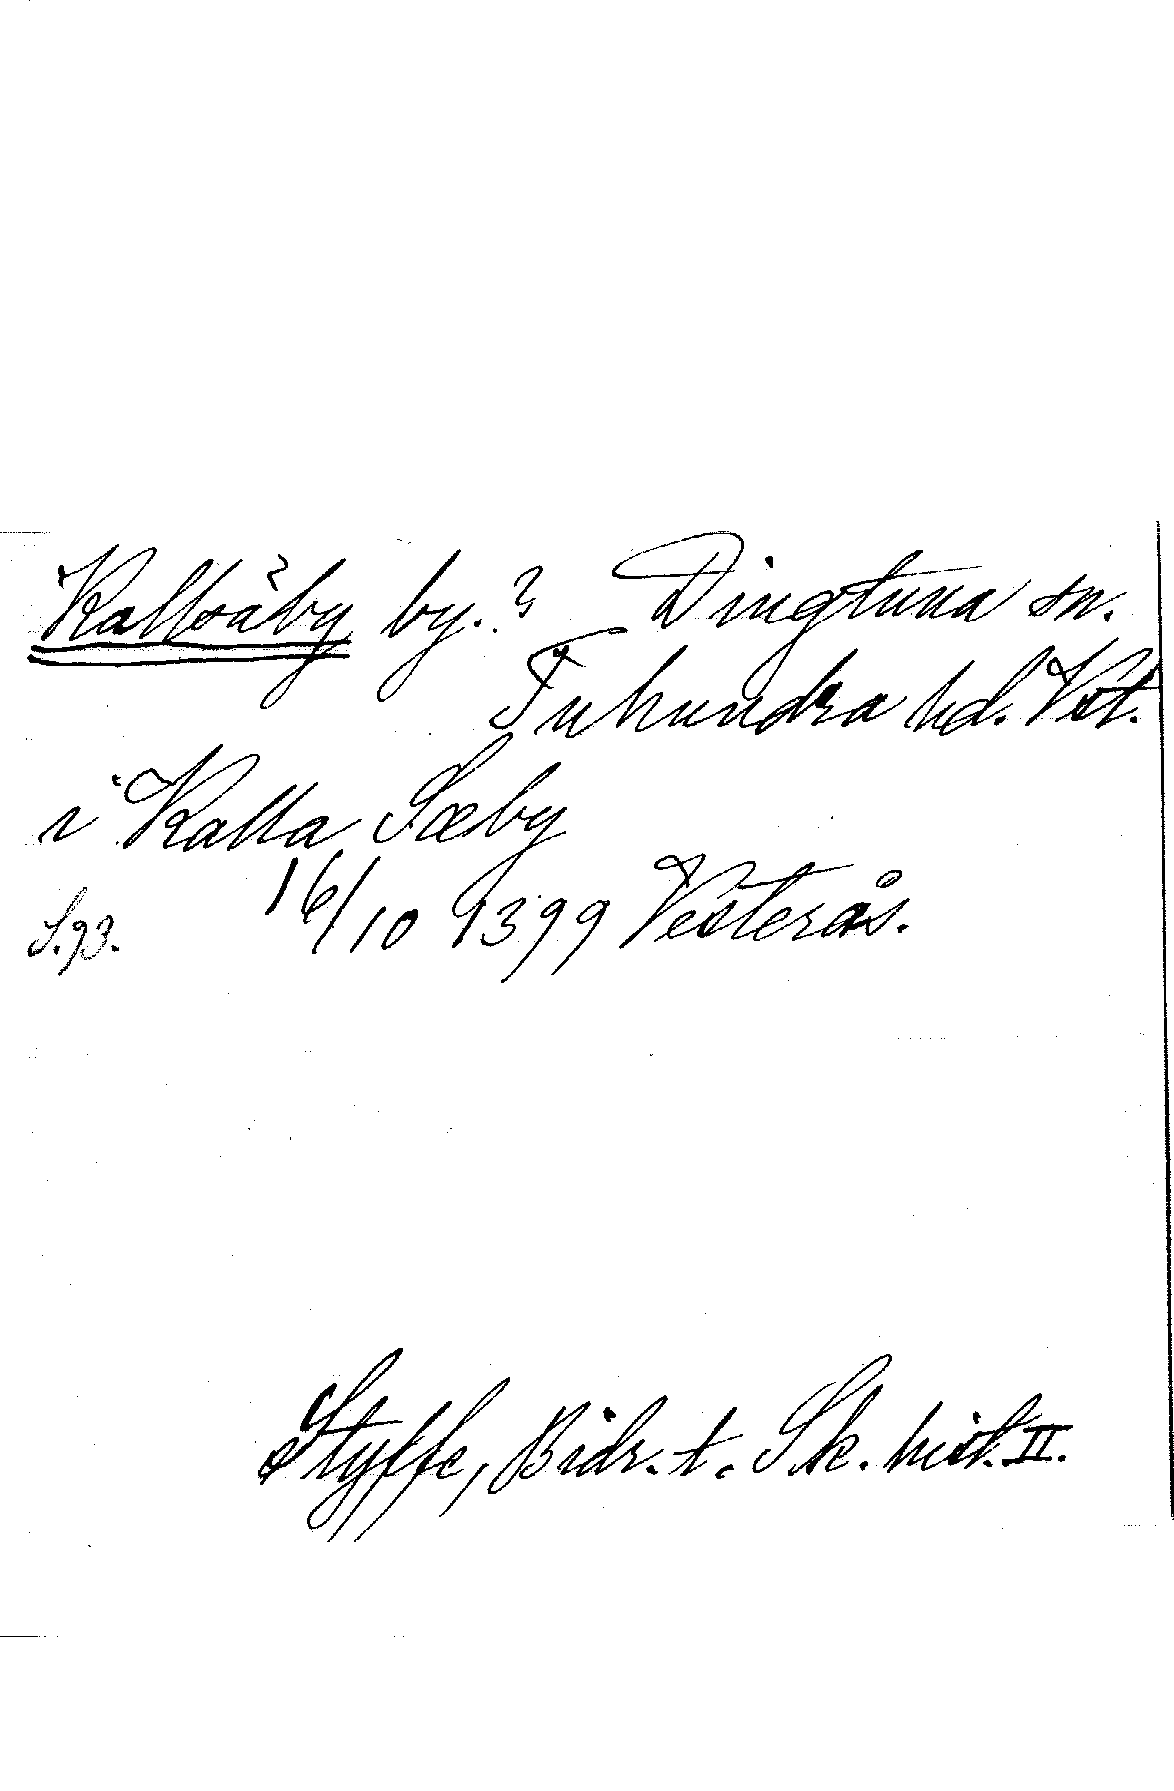 Kallsäby by.? Dingtuna sn.
Tuhundra hd. Vst.
i Kalla Sæby
S. 93. 16/10 1399 Vesterås.
Styffe, Bidr. t. Sk. hist. II.